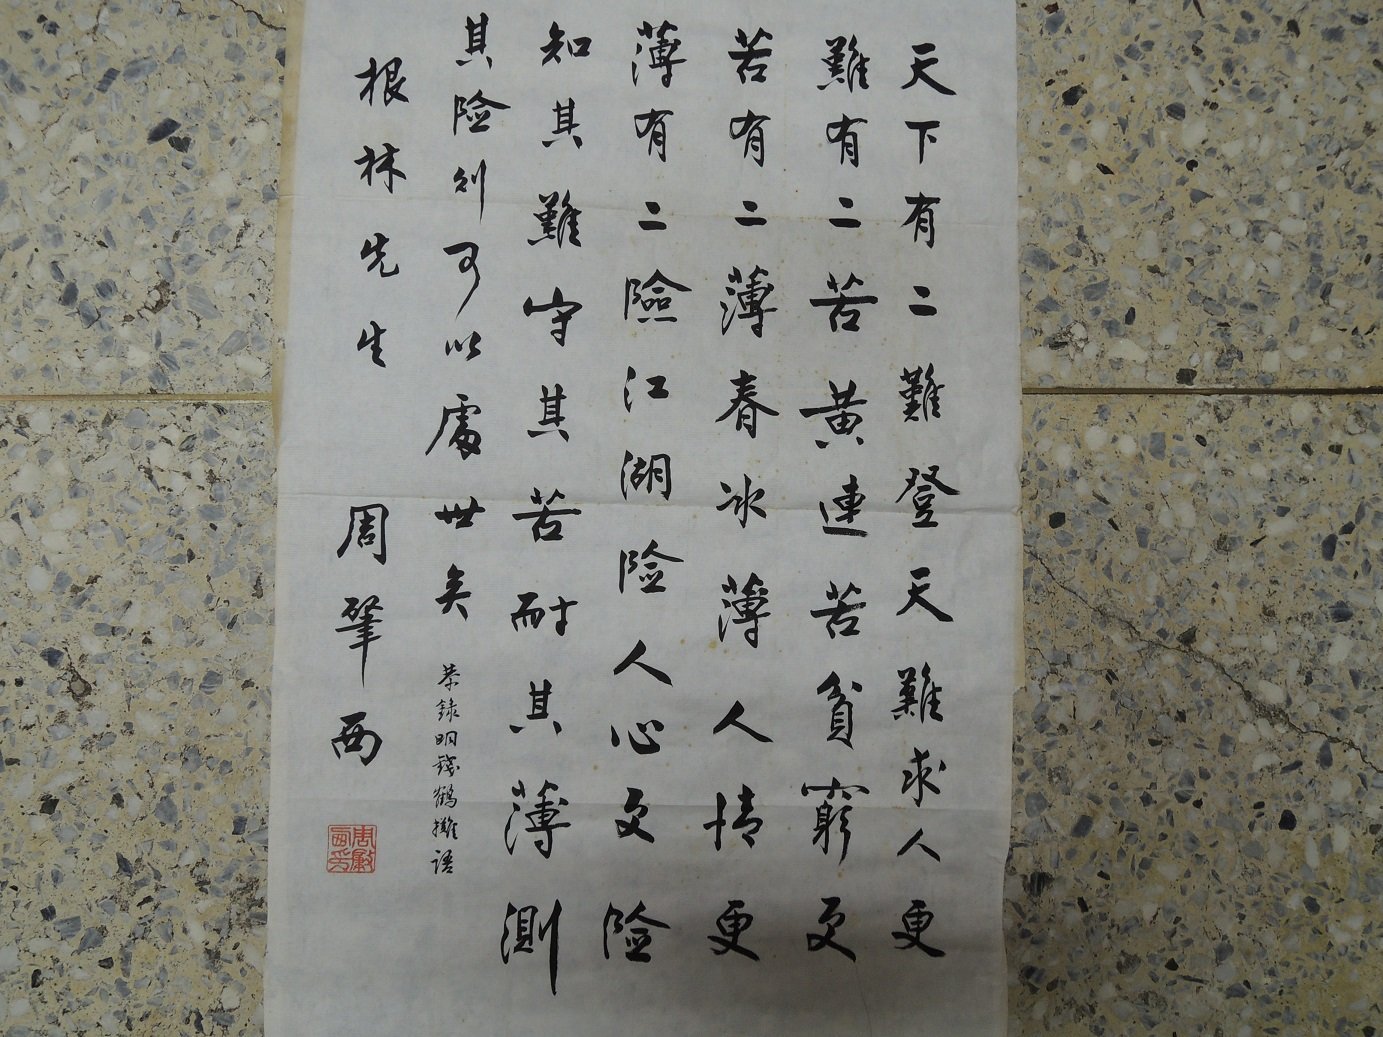 天下有二難登天難求人更
難有二苦黃連苦貧窮更
苦有二薄春冰薄人情更
薄有二險江湖險人心更險
知其難守其苦耐其薄測
其險則可以處世矣
恭錄明錢鶴灘語
根林先生 周肇西